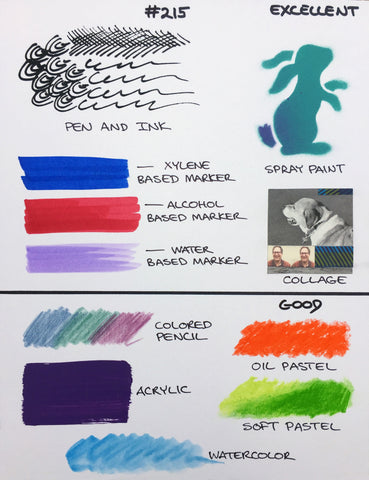 #215
EXCELLENT
PEN AND INK
SPRAY PAINT
XYLENE
BASED MARKER
ALCOHOL
BASED MARKER
WATER
BASED MARKER
COLLAGE
GOOD
COLORED
PENCIL
OIL PASTEL
ACRYLIC
SOFT PASTEL
WATERCOLOR